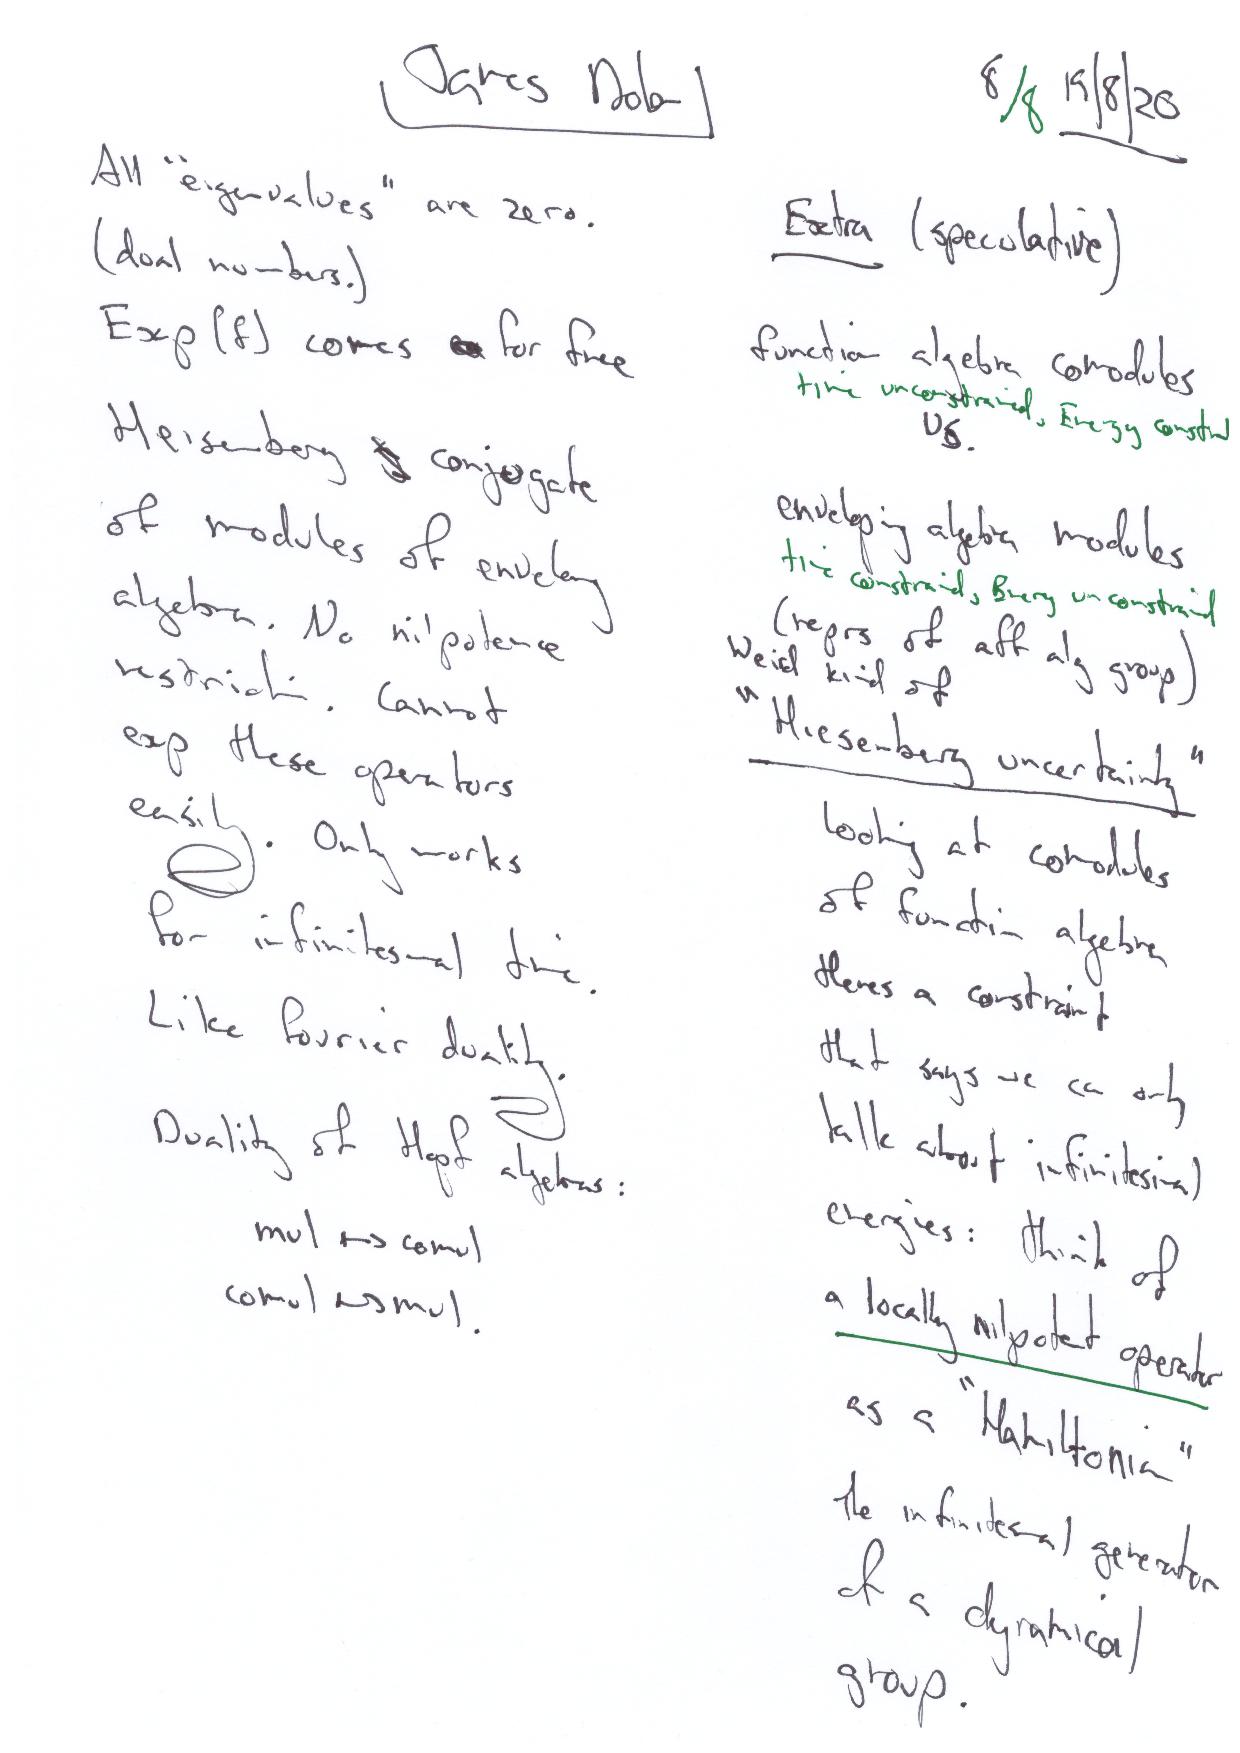 James Dolan
8/8 19/8/20
All "eigenvalues" are zero.
(dual numbers.)
Exp(f) comes for free
Heisenberg conjogate
of modules of enveloping
algebra. No nilpotence
restriction. Cannot
exp these operators
easily. Only works
for infinitesmal time.
Like fourier duality.
Duality of Hopf algebras:
mul ↔ comul
comul ↔ mul.
Extra (speculative)
function algebra comodules
time unconstrained, Energy constrained
vs.
enveloping algebra modules
time constrained, Energy unconstrained
(reprs of aff alg group)
Weird kind of
"Hiesenberg uncertainty"
looking at comodules
of function algebra
theres a constraint
that says we can only
talk about infinitesimal
energies: think of
a locally nilpotent operator
as a "Hamiltonian"
the infinitesmal generator
of a dynamical
group.